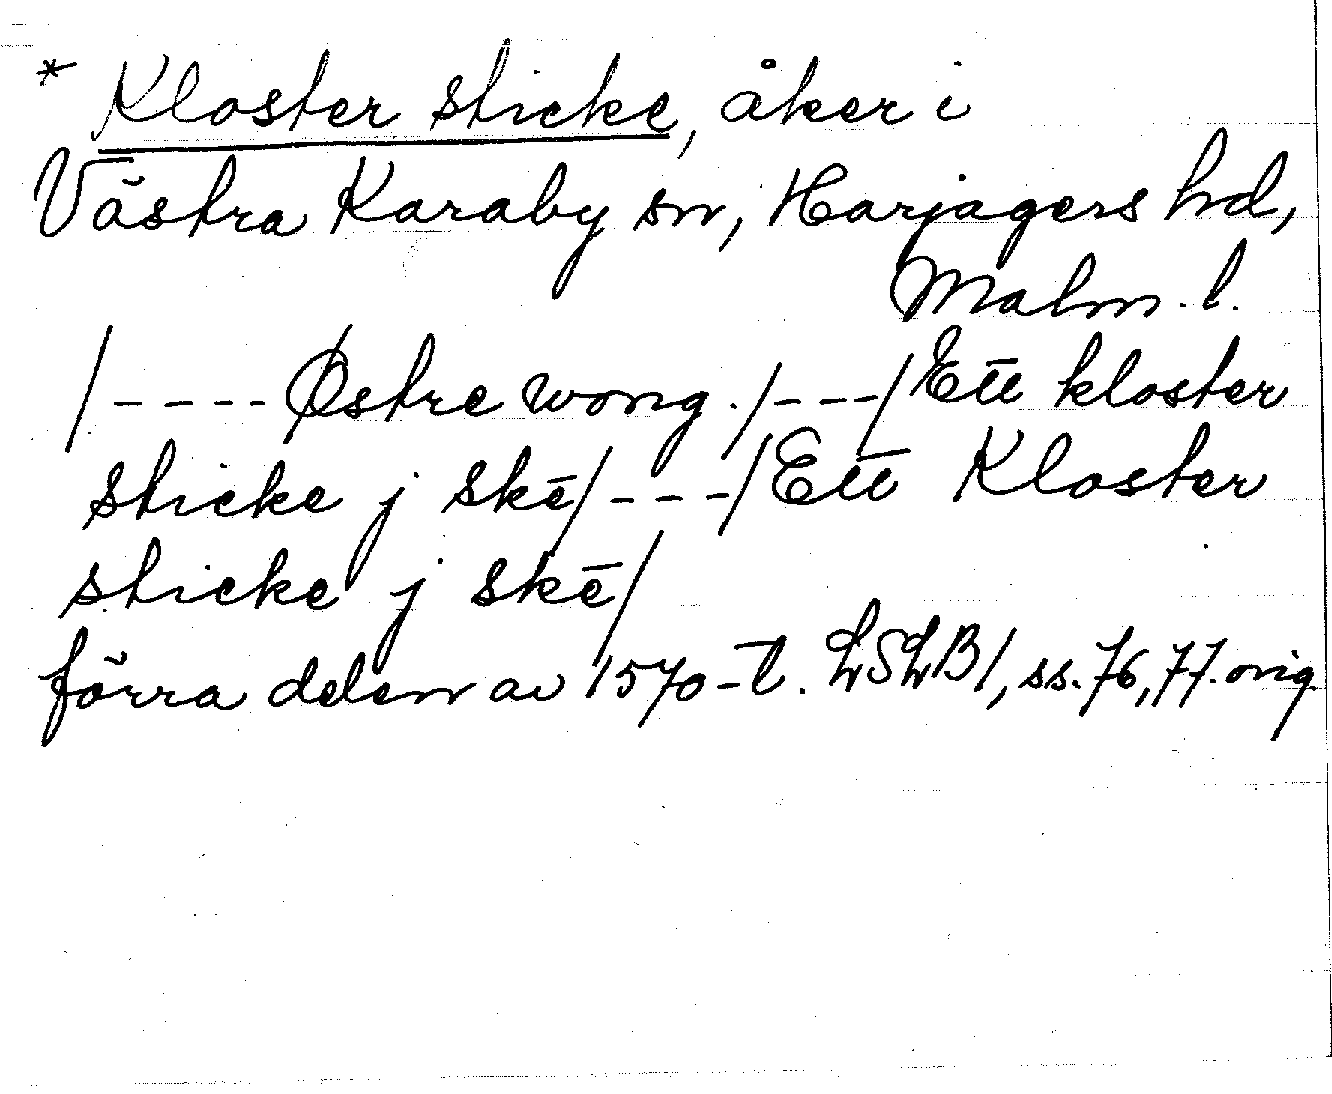 * Kloster sticke, åker i
Västra Karaby sn, Harjagers hd,
Malm. l.
/---- Østre wong. /---/ Ett kloster
sticke j skē/---/ Ett Kloster
sticke j skē/
förra delen av 1570-t. LSLB1, ss. 76, 77. orig.